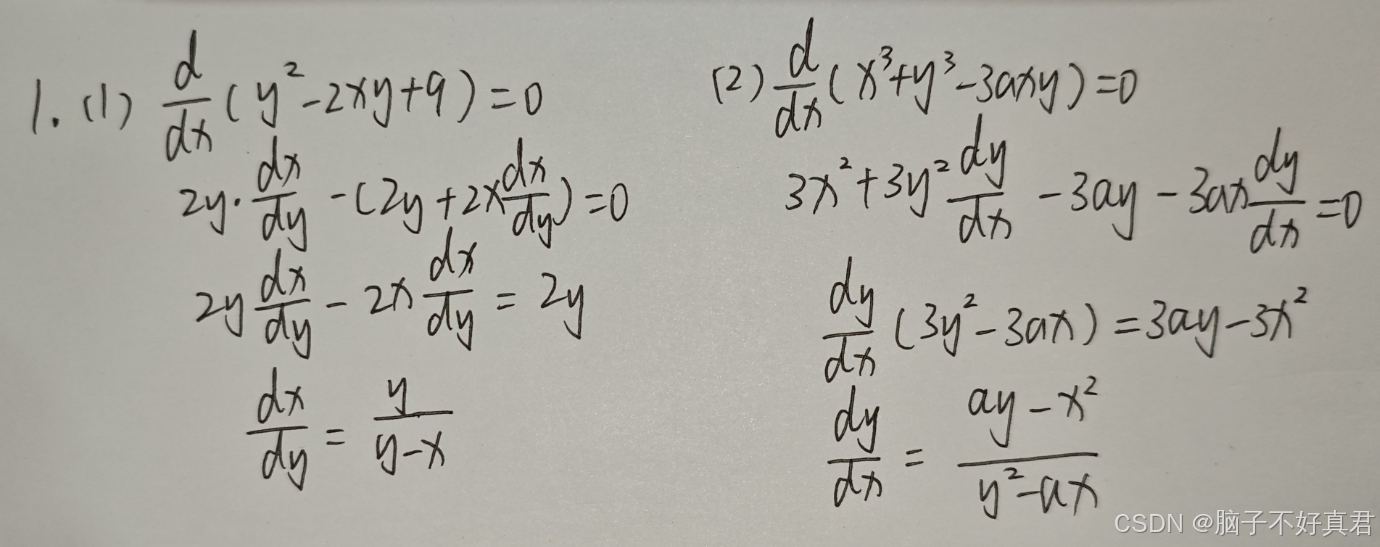 1. (1) d/dx (y² - 2xy + 9) = 0
2y · dx/dy - (2y + 2x dx/dy) = 0
2y dx/dy - 2x dx/dy = 2y
dx/dy = y/(y-x)
(2) d/dx (x³ + y³ - 3axy) = 0
3x² + 3y² dy/dx - 3ay - 3ax dy/dx = 0
dy/dx (3y² - 3ax) = 3ay - 3x²
dy/dx = (ay - x²)/(y² - ax)
CSDN @脑子不好真君